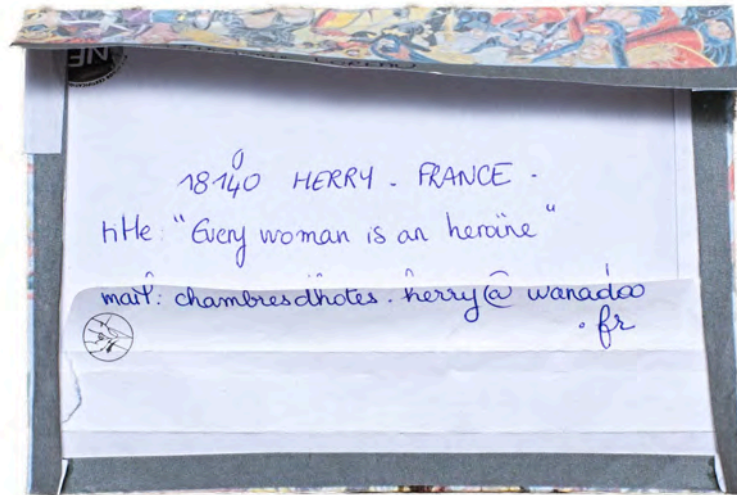 NE
18140 HERRY. FRANCE.
title: "Every woman is an heroïne"
mail: chambresdhotes.herry@wanadoo
.fr